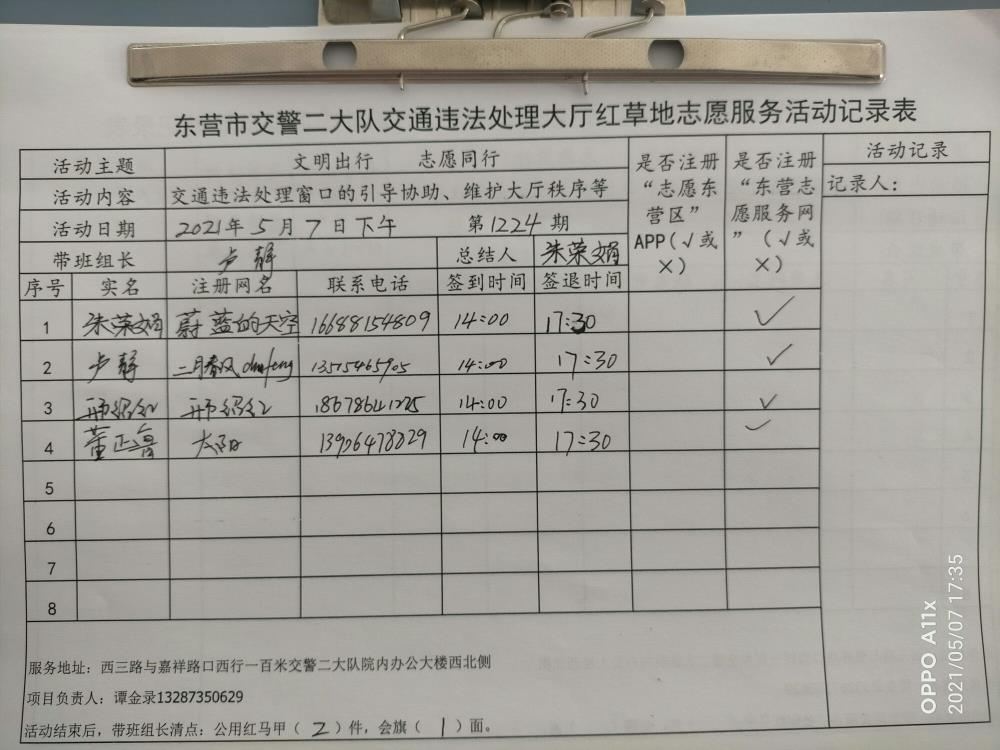 东营市交警二大队交通违法处理大厅红草地志愿服务活动记录表
活动主题 文明出行 志愿同行 是否注册“志愿东营区”APP(√或×) 是否注册“东营志愿服务网”(√或×) 活动记录
活动内容 交通违法处理窗口的引导协助、维护大厅秩序等 记录人：
活动日期 2021年5月7日下午 第1224期
带班组长 卢静 总结人 朱荣娟
序号 实名 注册网名 联系电话 签到时间 签退时间
1 朱荣娟 蔚蓝的天空 16688154809 14:00 17:30 ✓
2 卢静 二月春风 13515465905 14:00 17:30 ✓
3 14:00 17:30 ✓
4 董正鲁 太阳 13906478829 14:00 17:30 ✓
5
6
7
8
服务地址：西三路与嘉祥路口西行一百米交警二大队院内办公大楼西北侧
项目负责人：谭金录13287350629
活动结束后，带班组长清点：公用红马甲（2）件，会旗（1）面。
OPPO A11x
2021/05/07 17:35